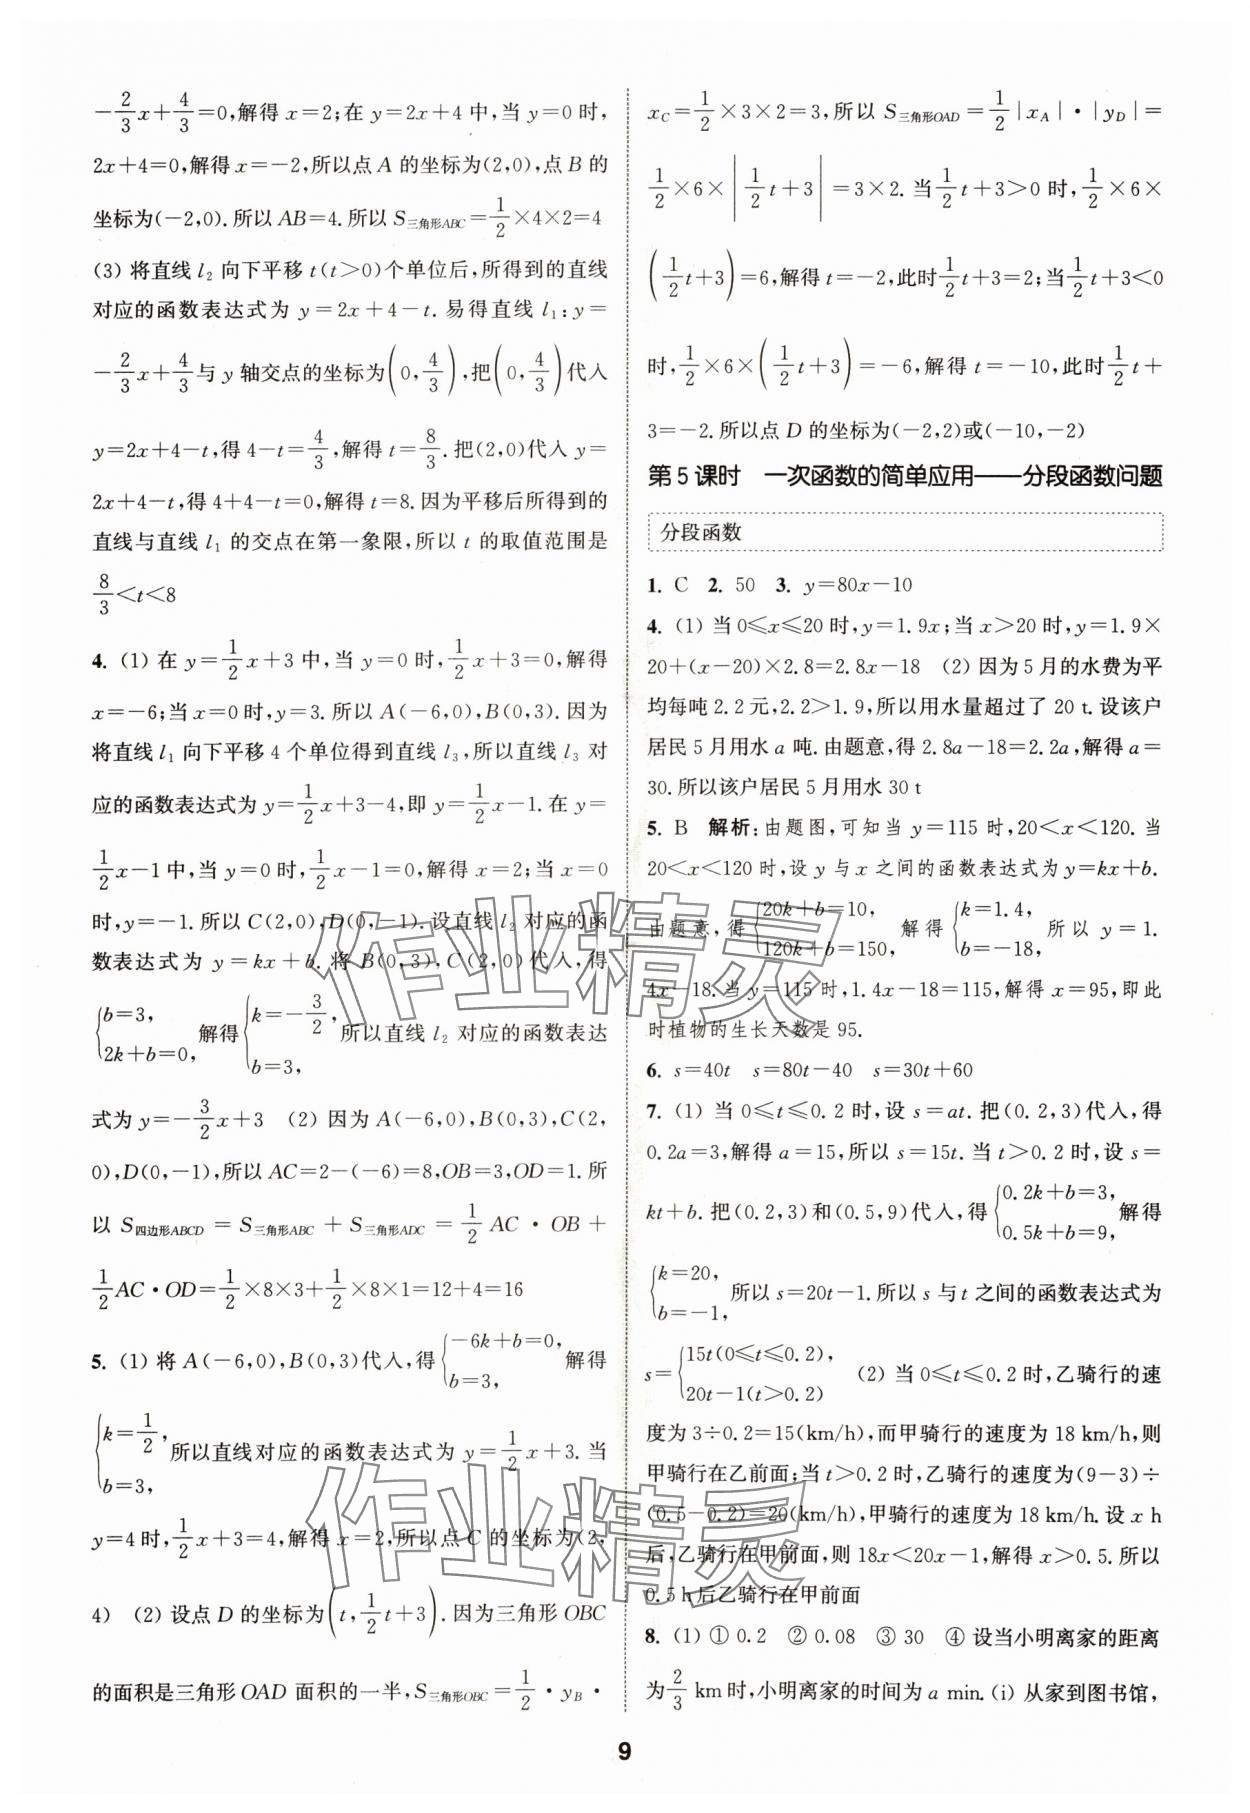 -2/3x+4/3=0,解得 x=2;在 y=2x+4 中,当 y=0 时,
2x+4=0,解得 x=-2,所以点 A 的坐标为(2,0),点 B 的
坐标为(-2,0).所以 AB=4.所以 S三角形ABC=1/2×4×2=4
(3) 将直线 l₂ 向下平移 t(t>0)个单位后,所得到的直线
对应的函数表达式为 y=2x+4-t. 易得直线 l₁:y=
-2/3x+4/3与 y 轴交点的坐标为(0,4/3),把(0,4/3)代入
y=2x+4-t,得 4-t=4/3,解得 t=8/3.把(2,0)代入 y=
2x+4-t,得 4+4-t=0,解得 t=8.因为平移后所得到的
直线与直线 l₁ 的交点在第一象限,所以 t 的取值范围是
8/3<t<8
4. (1) 在 y=1/2x+3 中,当 y=0 时,1/2x+3=0,解得
x=-6;当 x=0 时,y=3.所以 A(-6,0),B(0,3).因为
将直线 l₁ 向下平移 4 个单位得到直线 l₃,所以直线 l₃ 对
应的函数表达式为 y=1/2x+3-4,即 y=1/2x-1.在 y=
1/2x-1 中,当 y=0 时,1/2x-1=0,解得 x=2;当 x=0
时,y=-1.所以 C(2,0),D(0,-1).设直线 l₂ 对应的函
数表达式为 y=kx+b.将 B(0,3),C(2,0)代入,得
{b=3, 2k+b=0, 解得 {k=-3/2, b=3, 所以直线 l₂ 对应的函数表达
式为 y=-3/2x+3 (2) 因为 A(-6,0),B(0,3),C(2,
0),D(0,-1),所以 AC=2-(-6)=8,OB=3,OD=1.所
以 S四边形ABCD = S三角形ABC + S三角形ADC = 1/2 AC·OB+
1/2AC·OD=1/2×8×3+1/2×8×1=12+4=16
5. (1) 将 A(-6,0),B(0,3)代入,得 {-6k+b=0, b=3, 解得
{k=1/2, b=3, 所以直线对应的函数表达式为 y=1/2x+3. 当
y=4 时,1/2x+3=4,解得 x=2,所以点 C 的坐标为(2,
4) (2) 设点 D 的坐标为(t,1/2t+3).因为三角形 OBC
的面积是三角形 OAD 面积的一半,S三角形OBC=1/2·yB·
xC=1/2×3×2=3,所以 S三角形OAD=1/2|xA|·|yD|=
1/2×6×|1/2t+3|=3×2. 当1/2t+3>0 时,1/2×6×
(1/2t+3)=6,解得 t=-2,此时1/2t+3=2;当1/2t+3<0
时,1/2×6×(1/2t+3)=-6,解得 t=-10,此时1/2t+
3=-2.所以点 D 的坐标为(-2,2)或(-10,-2)
第 5 课时 一次函数的简单应用——分段函数问题
分段函数
1. C 2. 50 3. y=80x-10
4. (1) 当 0≤x≤20 时,y=1.9x;当 x>20 时,y=1.9×
20+(x-20)×2.8=2.8x-18 (2) 因为 5 月的水费为平
均每吨 2.2 元,2.2>1.9,所以用水量超过了 20 t.设该户
居民 5 月用水 a 吨.由题意,得 2.8a-18=2.2a,解得 a=
30.所以该户居民 5 月用水 30 t
5. B 解析:由题图,可知当 y=115 时,20<x<120. 当
20<x<120 时,设 y 与 x 之间的函数表达式为 y=kx+b.
由题意,得 {20k+b=10, 120k+b=150, 解得 {k=1.4, b=-18, 所以 y=1.
4x-18.当 y=115 时,1.4x-18=115,解得 x=95,即此
时植物的生长天数是 95.
6. s=40t s=80t-40 s=30t+60
7. (1) 当 0≤t≤0.2 时,设 s=at.把(0.2,3)代入,得
0.2a=3,解得 a=15,所以 s=15t.当 t>0.2 时,设 s=
kt+b.把(0.2,3)和(0.5,9)代入,得 {0.2k+b=3, 0.5k+b=9, 解得
{k=20, b=-1, 所以 s=20t-1.所以 s 与 t 之间的函数表达式为
s={15t(0≤t≤0.2), 20t-1(t>0.2) (2) 当 0≤t≤0.2 时,乙骑行的速
度为 3÷0.2=15(km/h),而甲骑行的速度为 18 km/h,则
甲骑行在乙前面;当 t>0.2 时,乙骑行的速度为(9-3)÷
(0.5-0.2)=20(km/h),甲骑行的速度为 18 km/h.设 x h
后,乙骑行在甲前面,则 18x<20x-1,解得 x>0.5.所以
0.5 h 后乙骑行在甲前面
8. (1) ① 0.2 ② 0.08 ③ 30 ④ 设当小明离家的距离
为2/3 km 时,小明离家的时间为 a min.(i) 从家到图书馆,
作业精灵
作业精灵
9